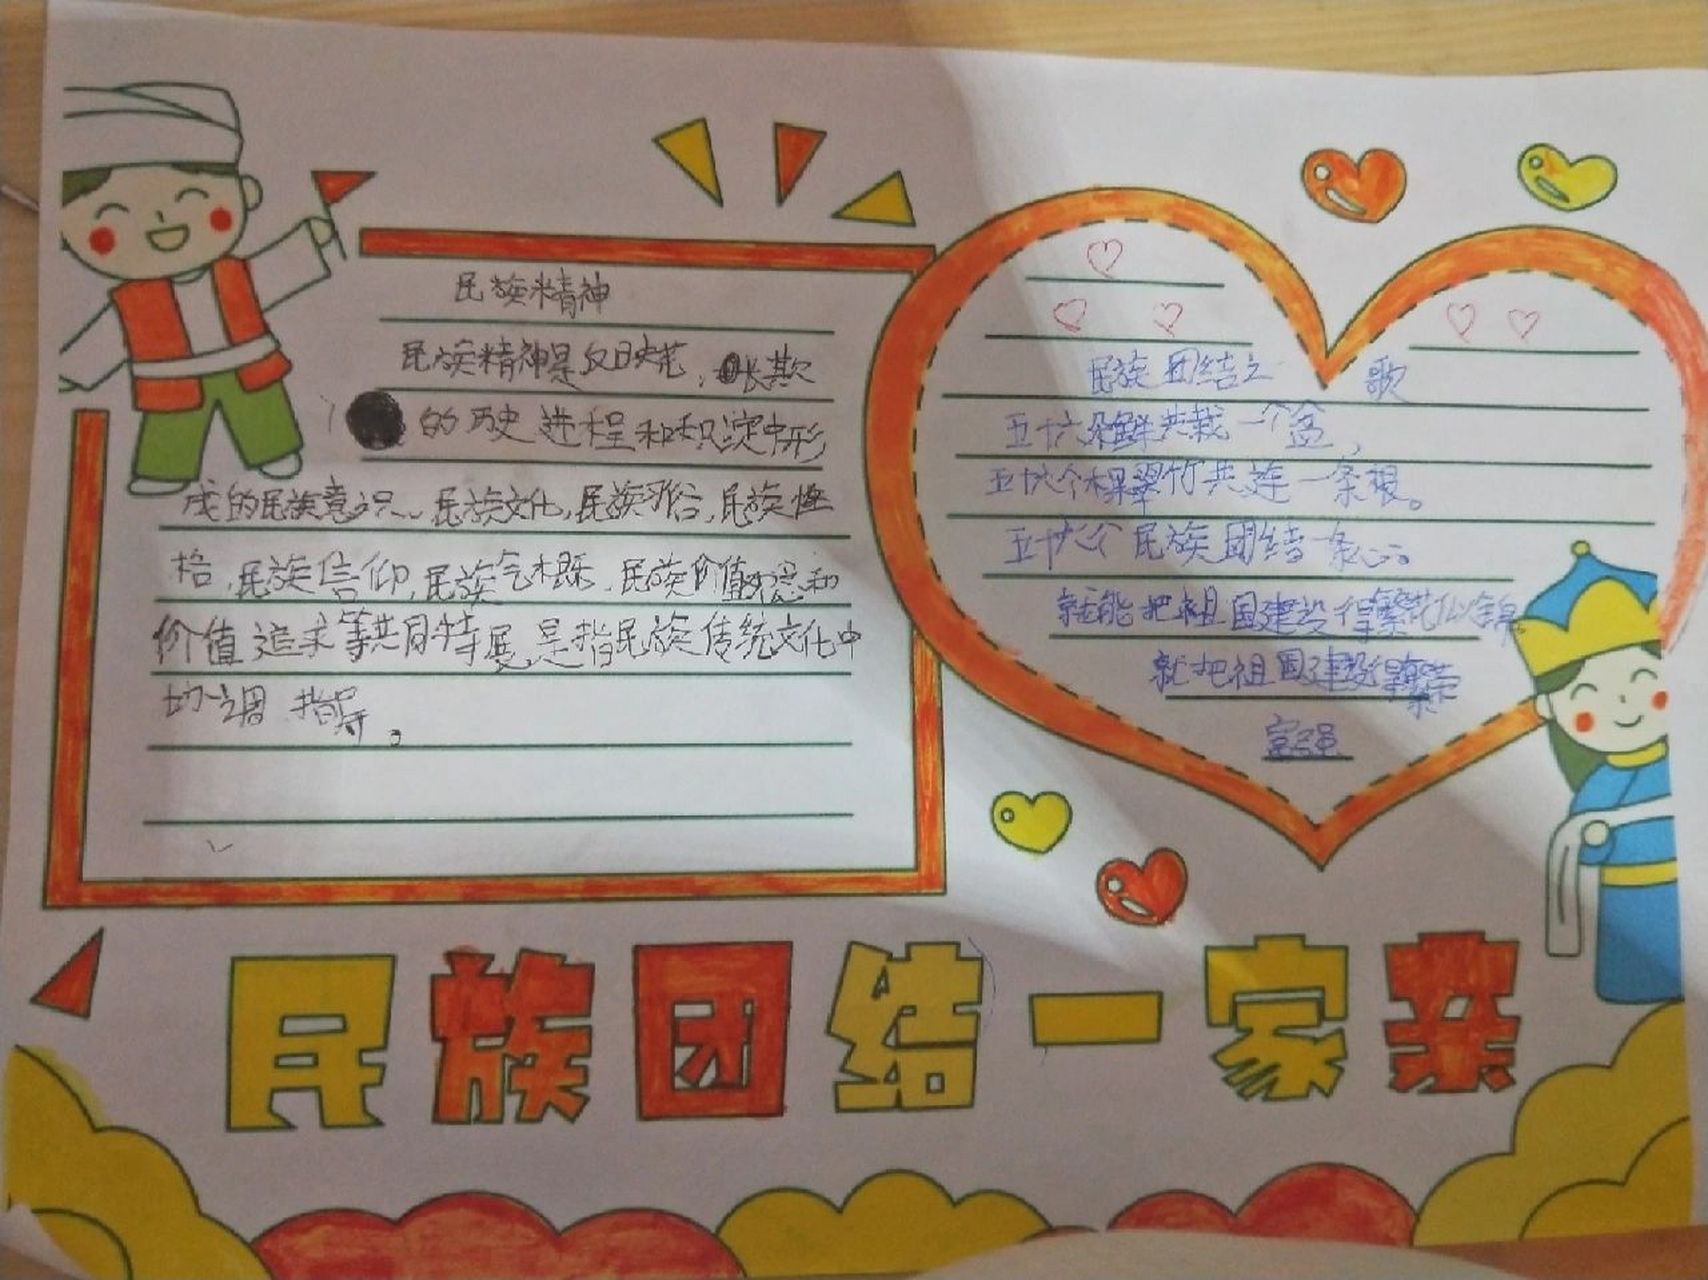 民族精神
民族精神是反，长
的历史进程和积淀中形
成的民族意识、民族文化，民族习俗，民族性
格，民族信仰，民族价值观念和
价值追求等共同特是指民族传统文化中
指导。
民族团结之歌
五十六朵鲜共栽一个盆，
五十六个棵翠竹共连一条根。
五十六个民族团结一条心。
就能把祖国建设得繁花似锦
就把祖国建设得繁荣
富强
民族团结一家亲